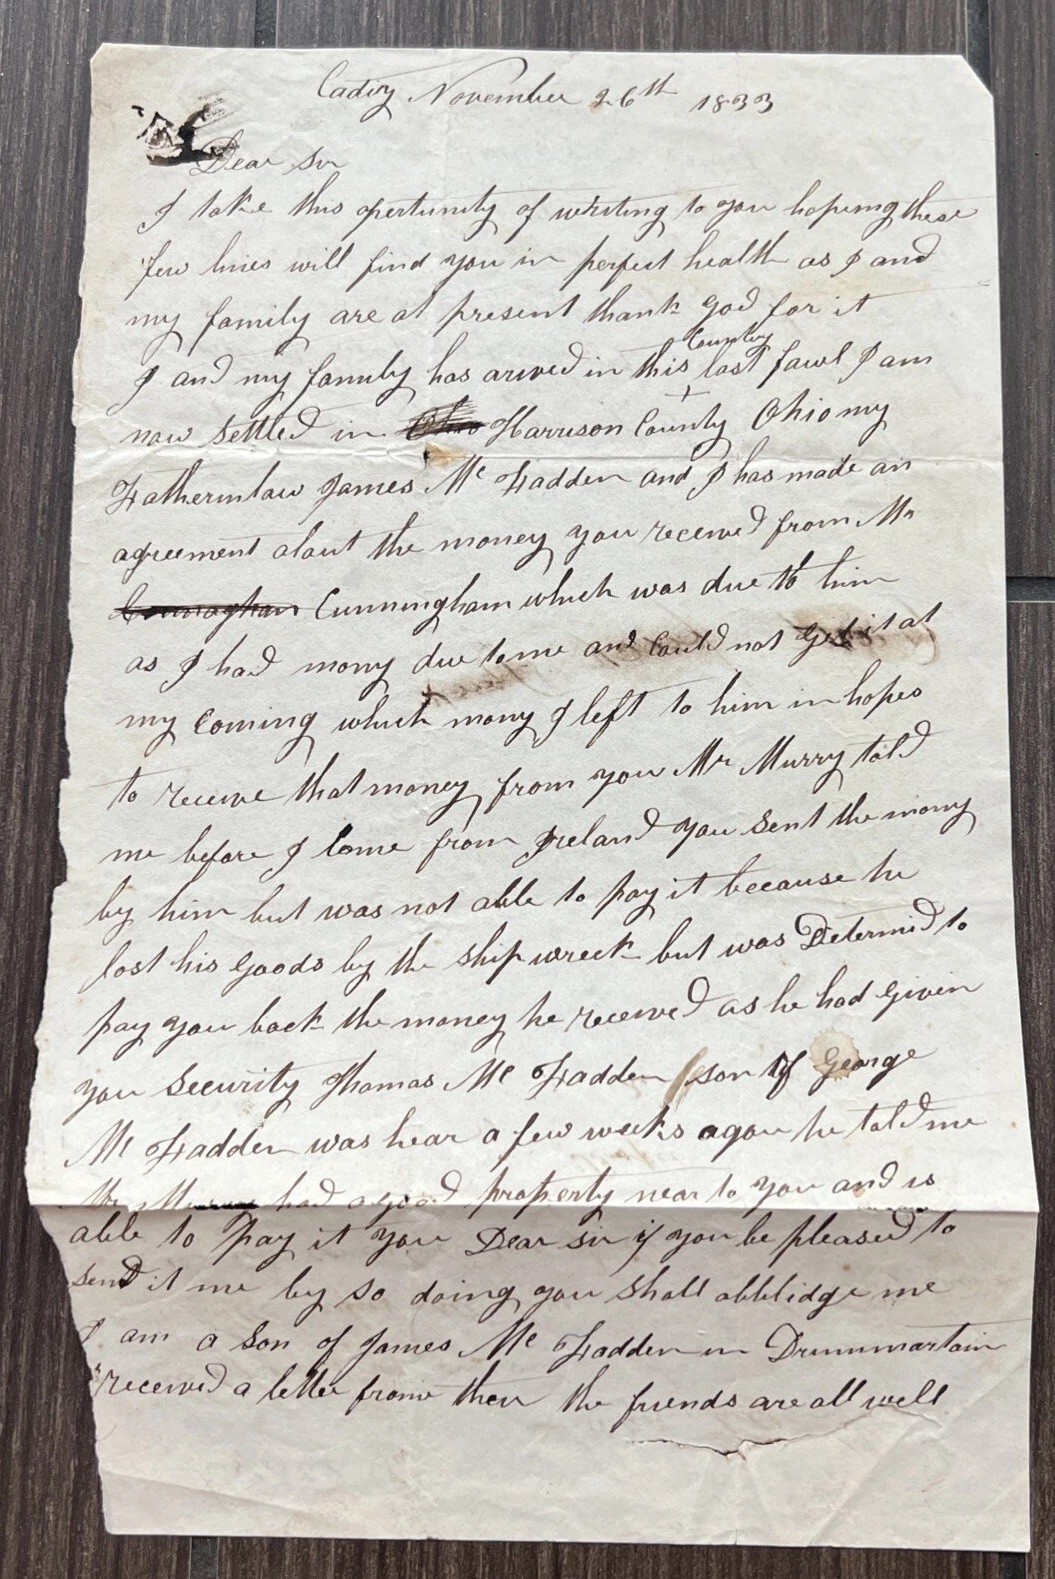 Cadiz November 26th 1833
Dear Sir
I take this opertunity of writing to you hopeing these
few lines will find you in perfect health as I and
my family are at present thank God for it
Country
I and my family has arived in this last fawl I am
now settled in Ohio Harrison County Ohio my
Fatherinlaw James Mc Fadden and I has made an
agreement about the money you received from Mr
Connaghan Cunningham which was due to him
as I had mony due to me and Could not Get it at
my Coming which mony I left to him in hopes
to receive that money from you Mr Murry told
me before I Come from Ireland you Sent the mony
by him but was not able to pay it because he
lost his Goods by the Ship wreck but was Determid to
pay you back the money he received as he had Given
you Security Thomas Mc Fadden son of George
Mc Fadden was hear a few weeks agou he told me
Mr had a good property near to you and is
able to Pay it you Dear Sir if you be pleased to
Send it me by So doing you Shall abblidge me
I am a Son of James Mc Fadden in Drummartain
received a letter from then the friends are all well